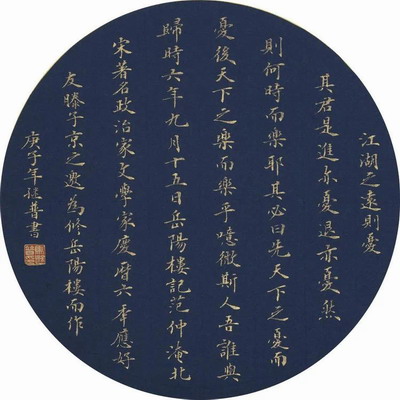 江湖之遠則憂
其君是進亦憂退亦憂然
則何時而樂耶其必曰先天下之憂而
憂後天下之樂而樂乎噫微斯人吾誰與
歸時六年九月十五日岳陽樓記范仲淹北
宋著名政治家文學家慶曆六年應好
友滕子京之邀為修岳陽樓而作
庚子年 普書